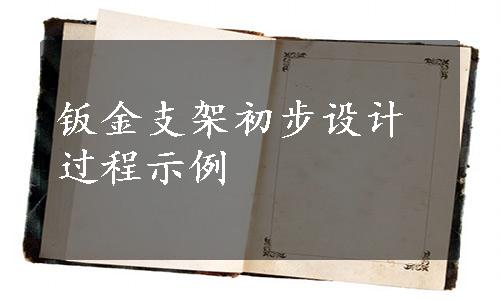 钣金支架初步设计
过程示例